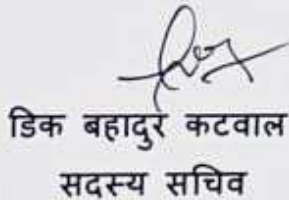 डिक बहादुर कटवाल
सदस्य सचिव